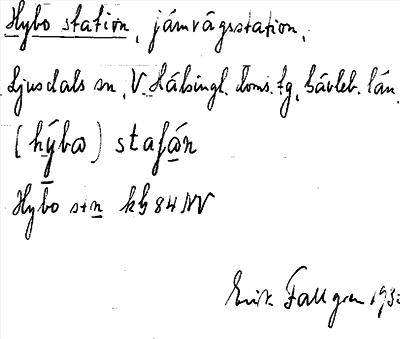 Hybo station, järnvägsstation,
Ljusdals sn, V. Hälsingl. doms. tg, Gävleb. län.
(hýbo) stafán
Hybo stn kb 84 NV
Erik Fallgren 193